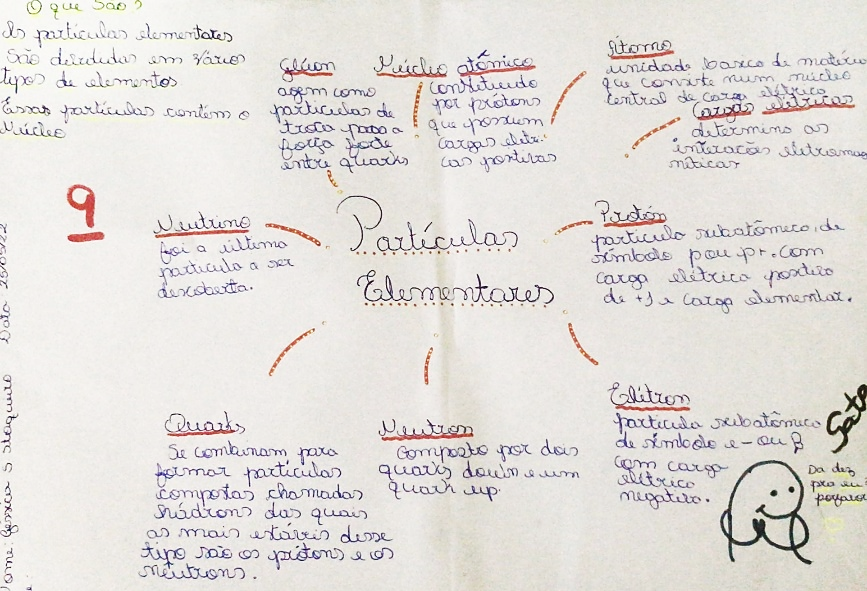 O que São?
As partículas elementares
São divididas em vários
tipos de elementos
Essas partículas contém o
Núcleo
Glúon
agem como
partículas de
troca para a
força forte
entre quarks
Núcleo atômico
constituído
por prótons
que possuem
cargas elétri-
cas positivas
Átomo
unidade basica de matéria
que consiste num núcleo
central de carga elétrica
Cargas elétricas
determina as
interações eletromag
néticas
9
Neutrino
foi a última
partícula a ser
descoberta.
Partículas
Elementares
Protón
partícula subatômica, de
símbolo p ou p+. com
carga elétrica positiva
de +1 e carga elementar.
Quarks
Se combinam para
formar partículas
compostas chamadas
hádrons das quais
as mais estáveis desse
tipo são os prótons e os
nêutrons.
Neutron
Composto por dois
quarks down e um
quark up.
Elétron
particula subatômica
de símbolo e- ou β
com carga
elétrica
negativa.
Da dez
pra eu
Nome:
Data